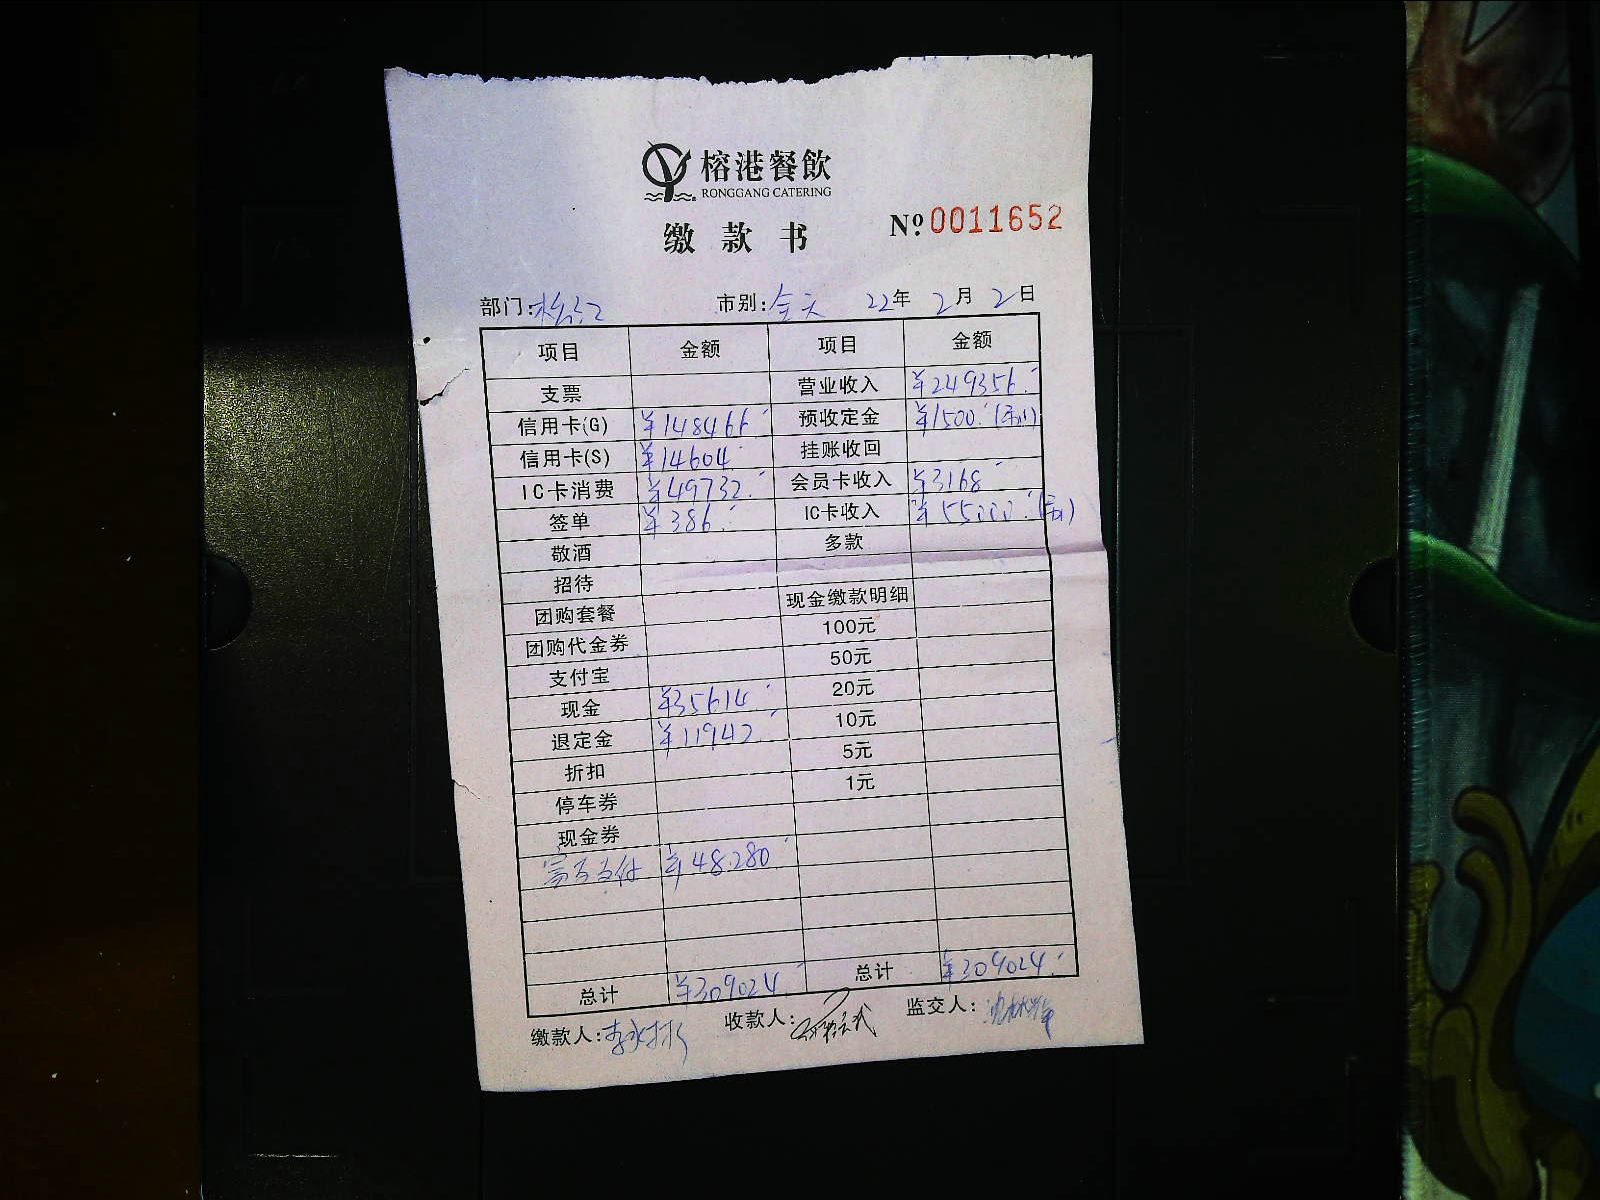 榕港餐飲
RONGGANG CATERING
缴款书 Nº 0011652
部门:松江 市别:全天 22年 2月 2日
项目 金额 项目 金额
支票 营业收入 ¥249356.-
信用卡(G) ¥148466.- 预收定金 ¥1500.-
信用卡(S) ¥14604.- 挂账收回
IC卡消费 ¥49732.- 会员卡收入 ¥3168.-
签单 ¥386.- IC卡收入 ¥55000.-
敬酒 多款
招待
团购套餐 现金缴款明细
团购代金券 100元
支付宝 50元
现金 ¥35614.- 20元
退定金 ¥11942.- 10元
折扣 5元
停车券 1元
现金券
富友支付 ¥48280.-
总计 ¥309024.- 总计 ¥309024.-
缴款人: 收款人: 监交人: